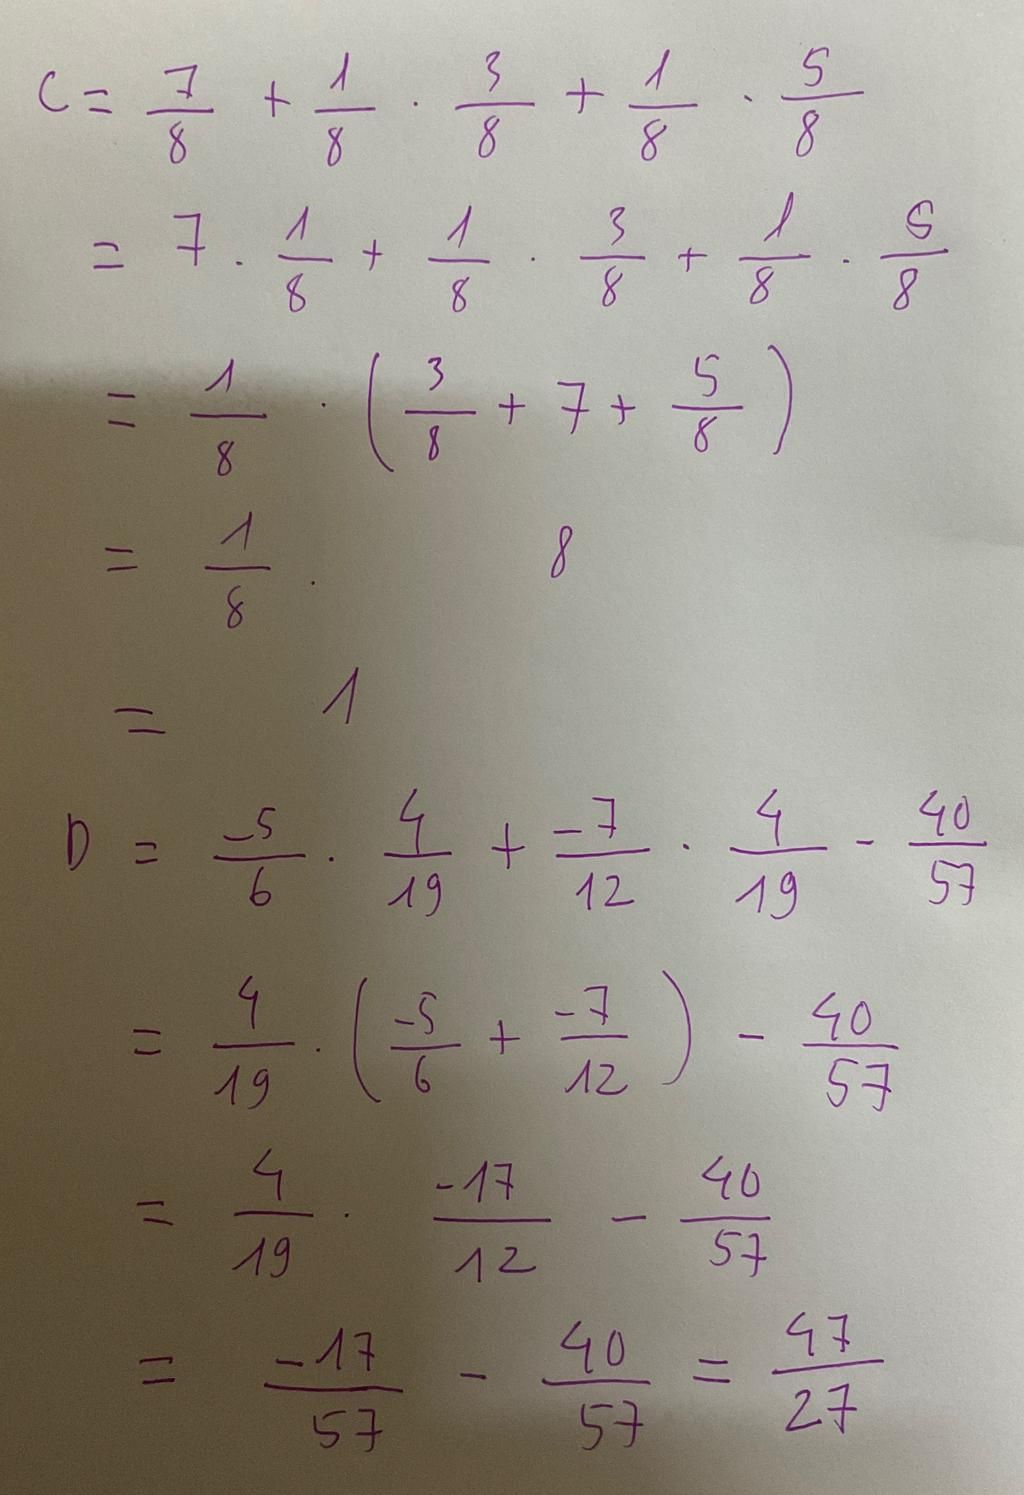 C = 7/8 + 1/8 . 3/8 + 1/8 . 5/8
= 7 . 1/8 + 1/8 . 3/8 + 1/8 . 5/8
= 1/8 . (3/8 + 7 + 5/8)
= 1/8 . 8
= 1
D = -5/6 . 4/19 + -7/12 . 4/19 - 40/57
= 4/19 . (-5/6 + -7/12) - 40/57
= 4/19 . -17/12 - 40/57
= -17/57 - 40/57 = 47/27